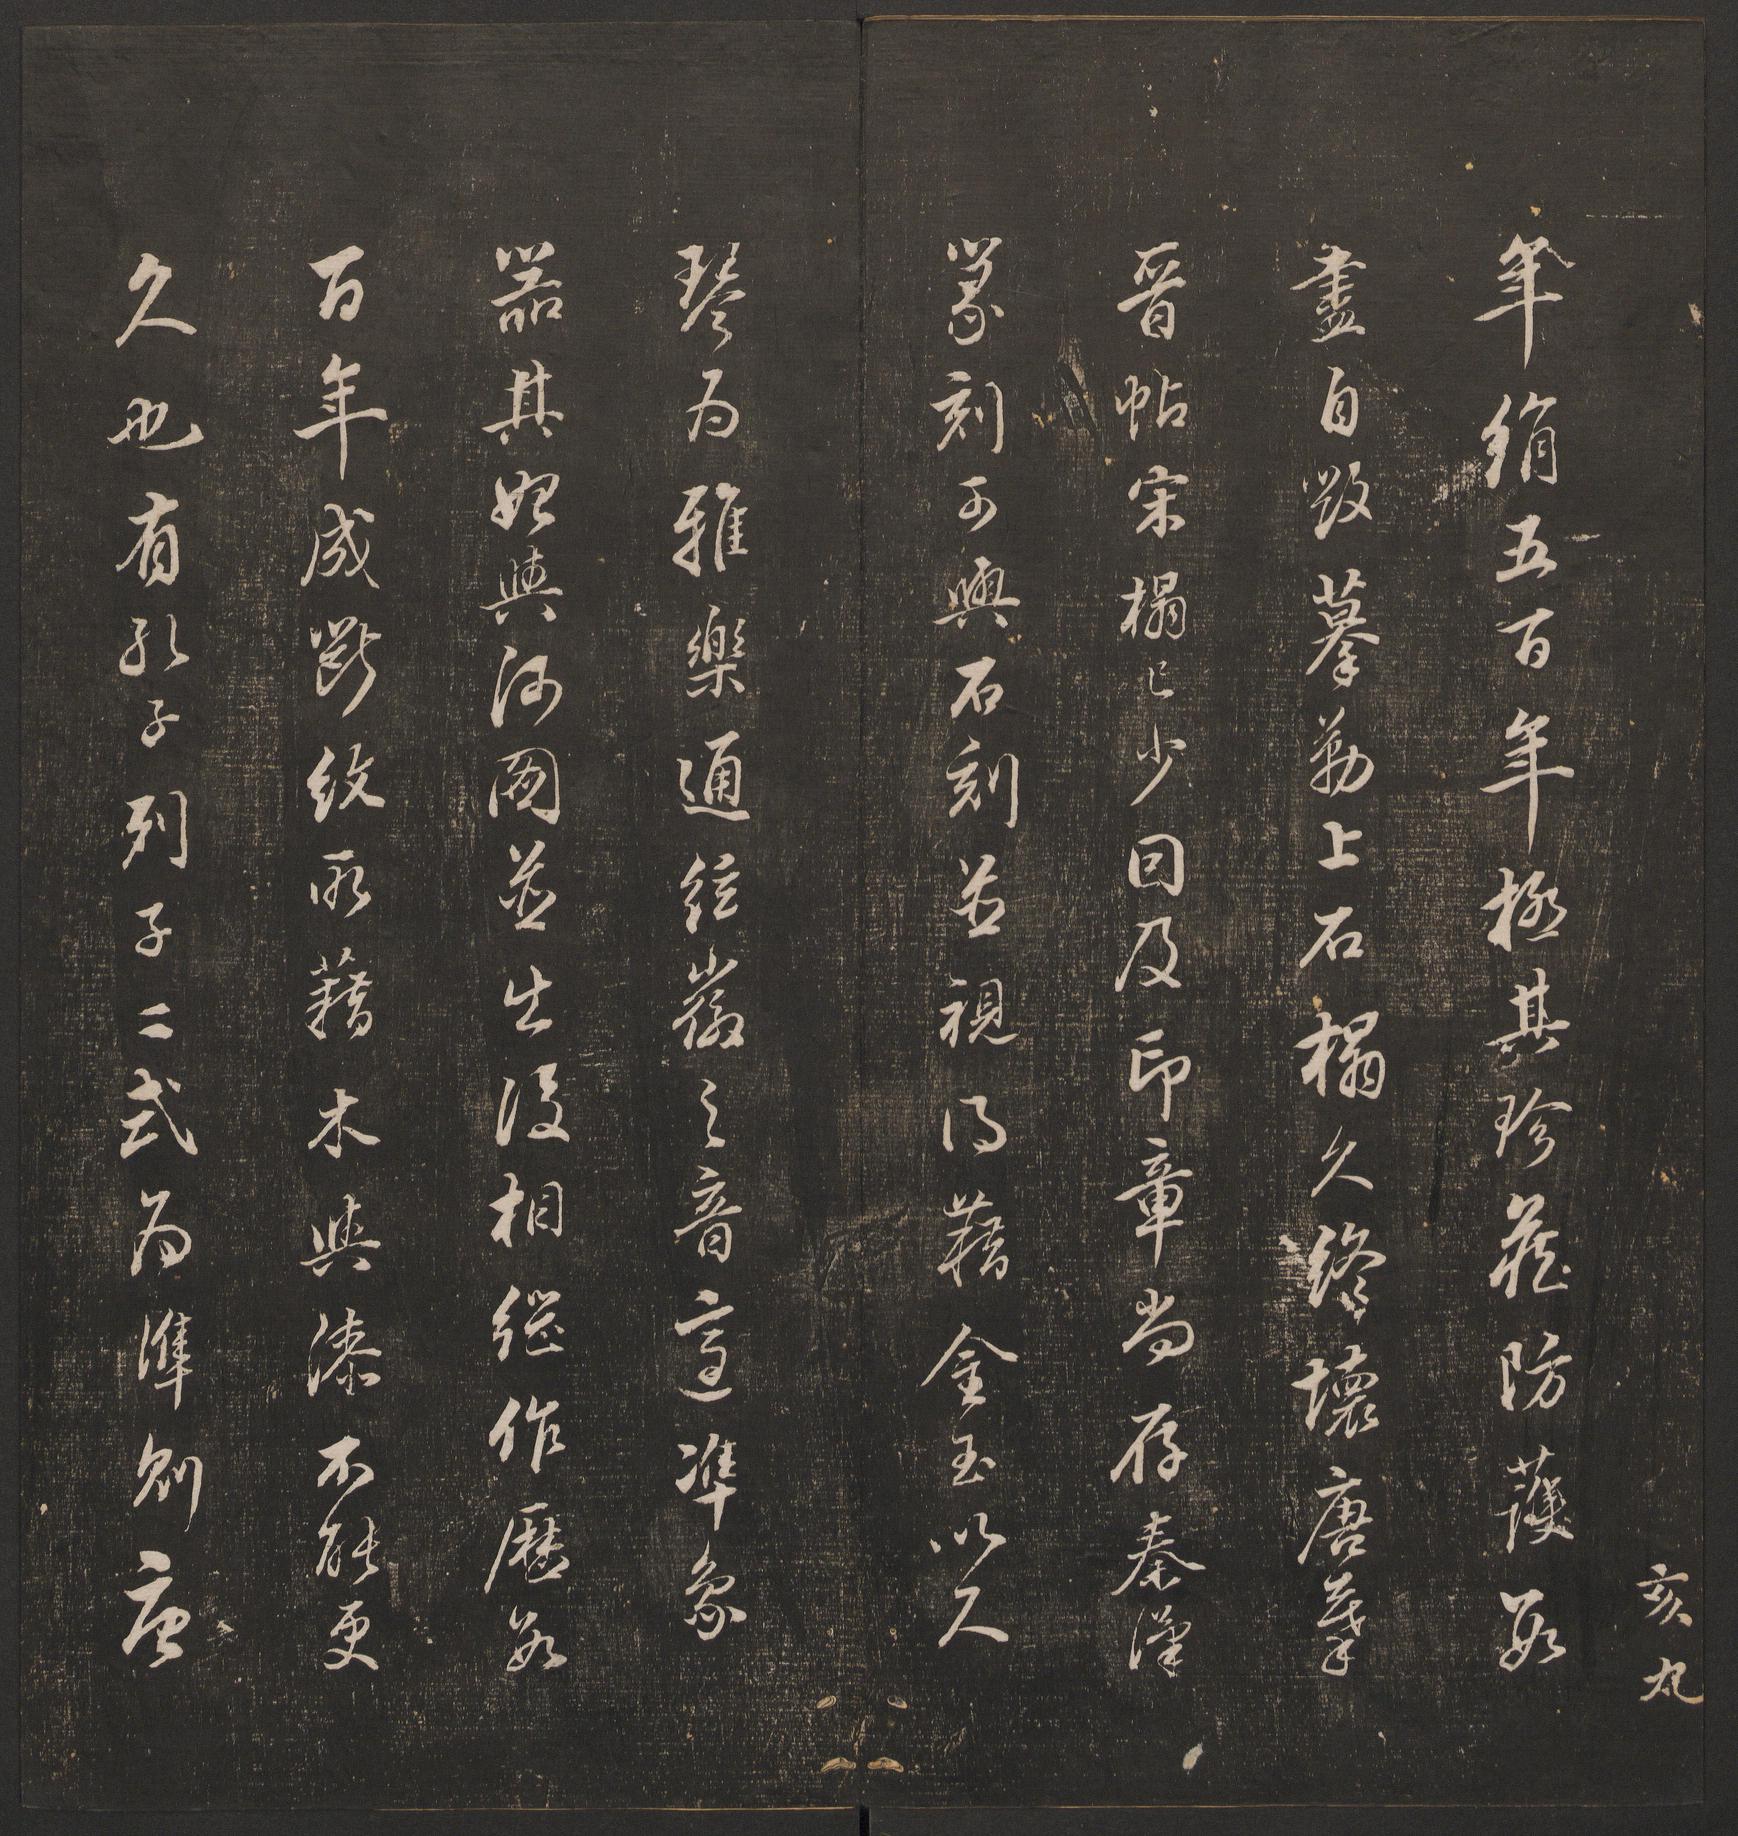 年絹五百年極其珍藏防護易
盡自毀摹勒上石榻久終壞唐摹
晉帖宋榻已少因及印章尚存秦漢
篆刻可與石刻並視乃藉金玉以久
琴為雅樂通絃徽之音高準象
器其始與河圖並出後相継作歷數
百年成斷紋所藉木與漆不能更
久也有孔子列子二式為準則唐
亥九